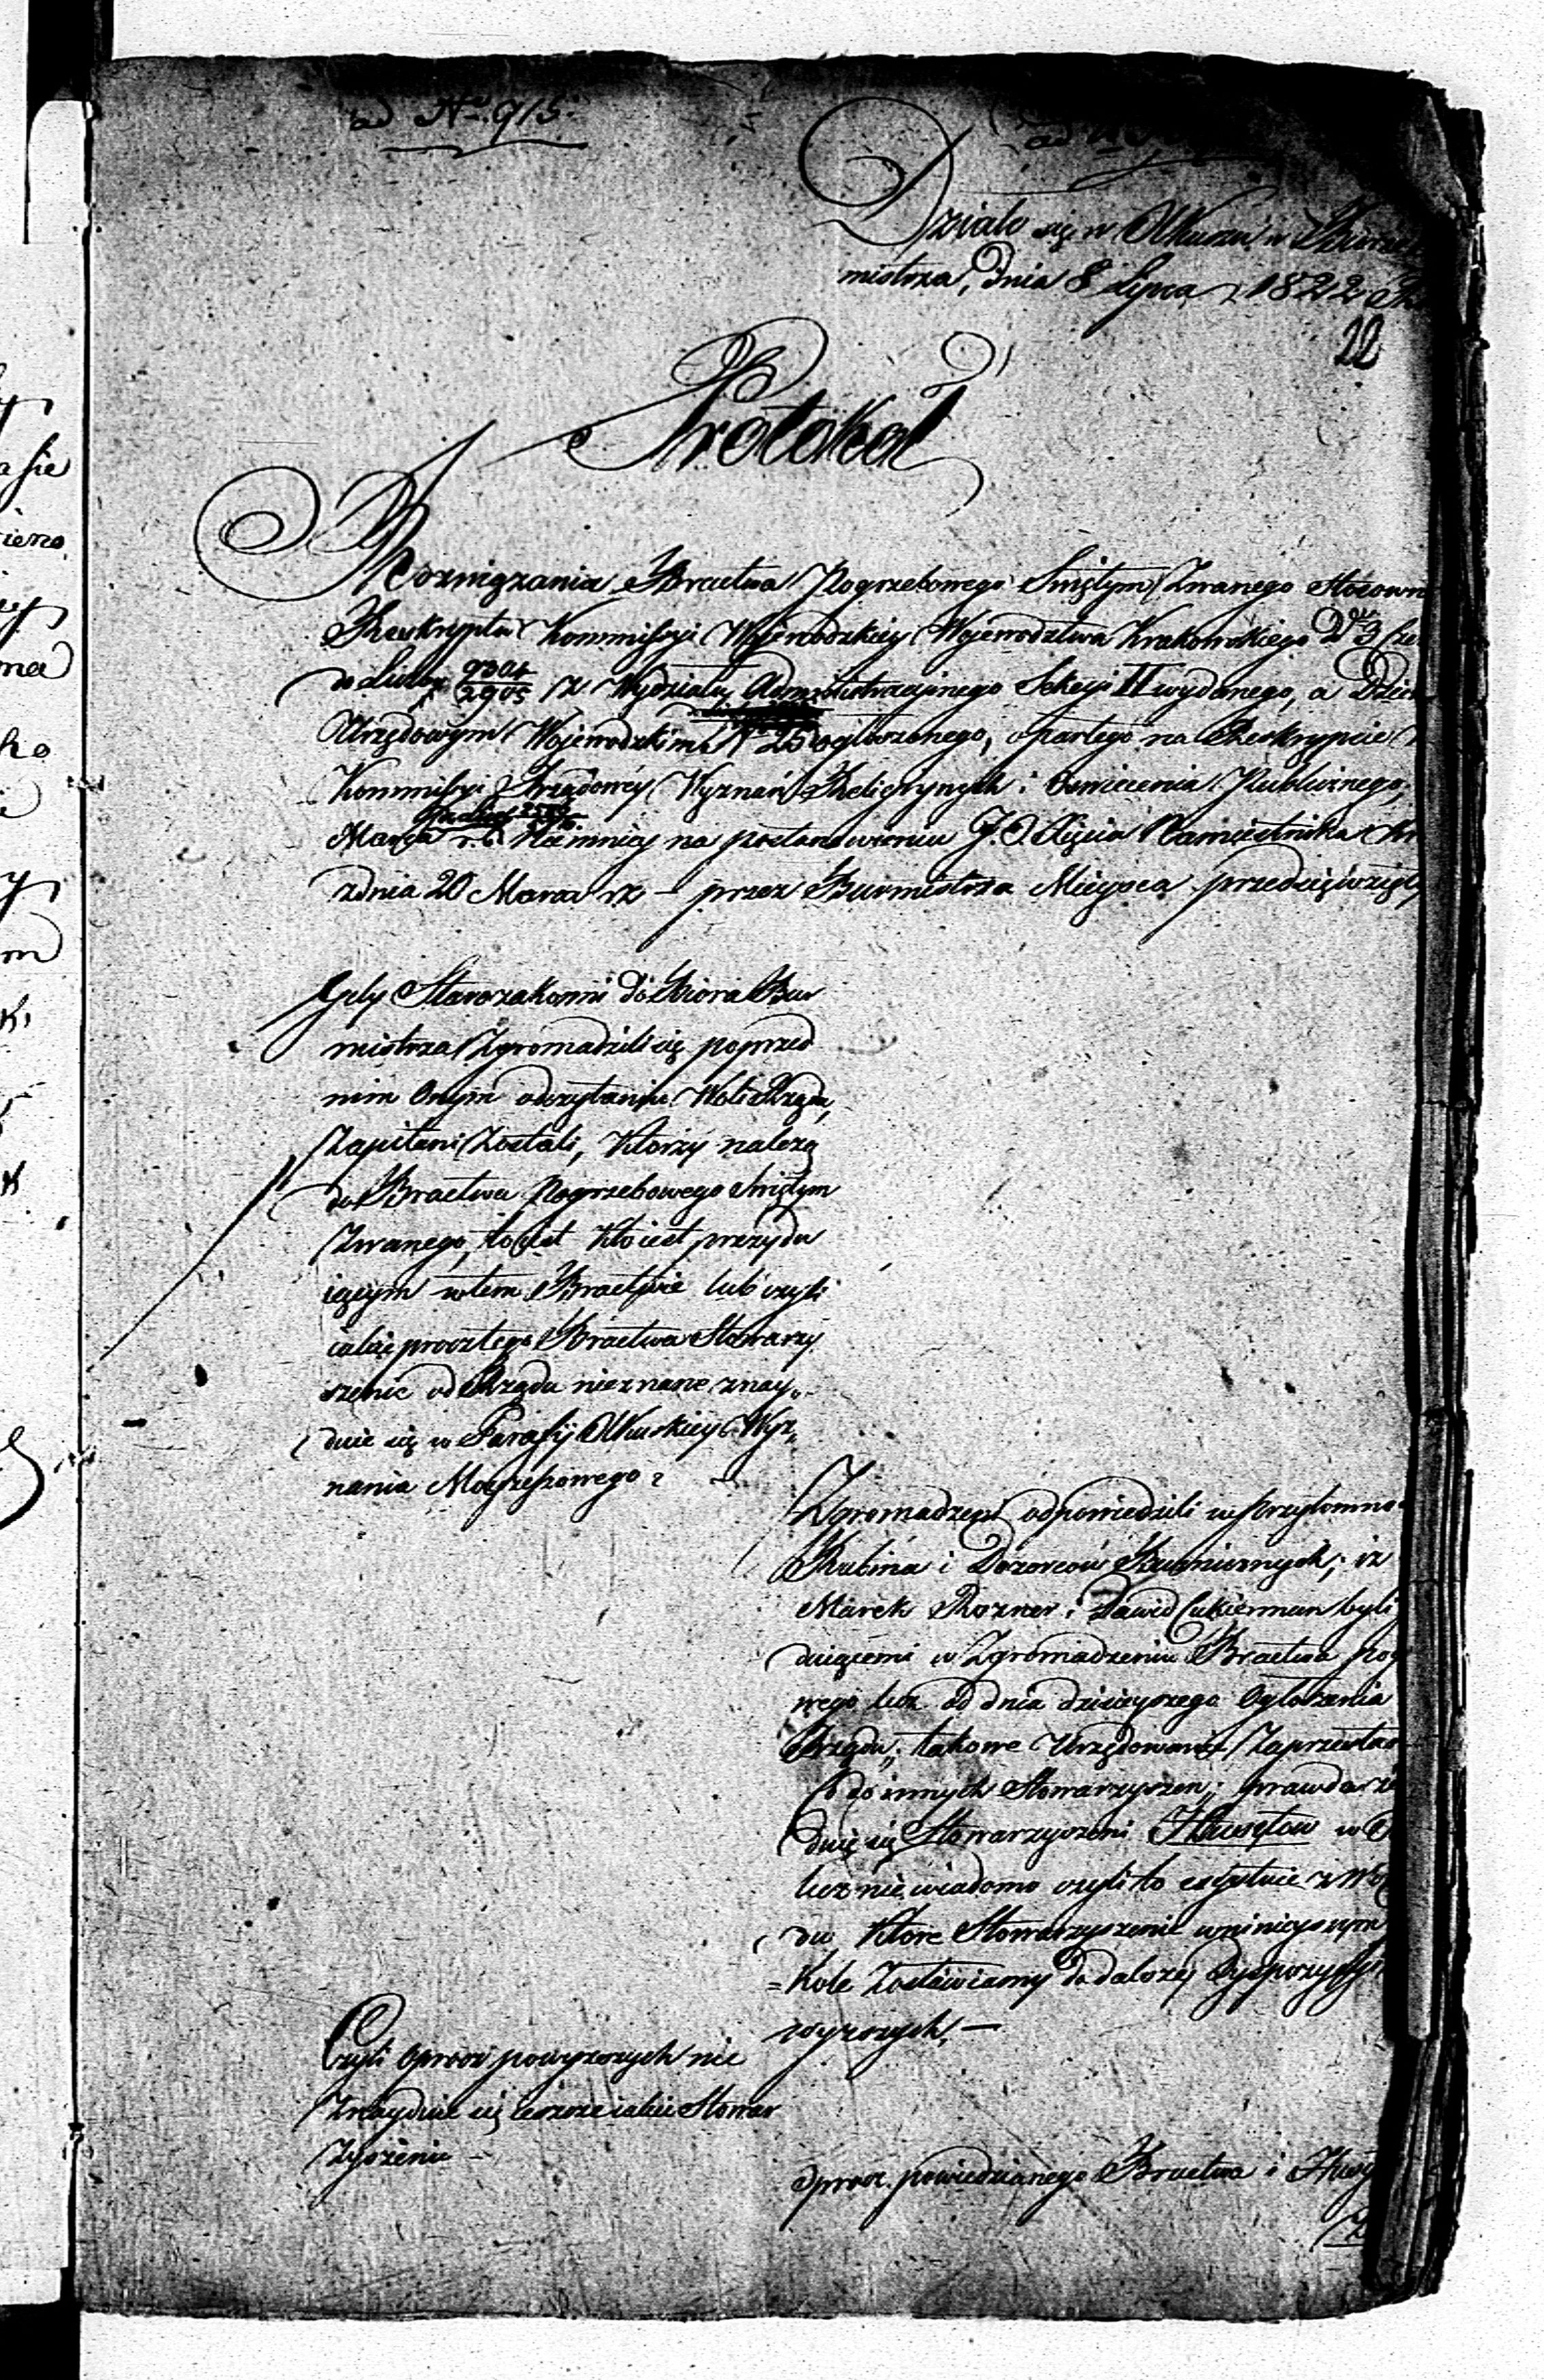 ad N. 915.
ad
Działo się w Olkuszu w Biorze
mistrza, dnia 8 Lipca 1822
22
Protokół
Rozwiązania Bractwa Pogrzebowego Swiętym Zwanego Stosown
Reskryptu Kommissyi Wojewodzkiey Wojewodztwa Krakowskiego D. 3 Cze
do Liczby 9304/2905 z Wydziału Administracyinego Sekcyi II wydanego, a Dzien
Urzędowym Wojewodzkim N 25 ogłoszonego, opartego na Reskrypcie
Kommissyi Rządowéy Wyznań Religiynych i Oswiecenia Publicznego,
Marca r. b. Niemniey na postanowieniu J. O. Xięcia Namiestnika Kr
zdnia 20 Marca rb – przez Burmistrza Mieysca przedsięwzięty
Gdy Starozakonni do Biora Bur
mistrza Zgromadzili się poprzed
nim Onym odczytaniu Woli Rządu,
Zapitani Zostali, Którzy należą
do Bractwa Pogrzebowego Swiętym
Zwanego, to iest Kto iest przydu
iącym w tem Bractwie lub czyli
iakie procz tego Bractwa Stowarzy
szenie od Rządu nieznane znay„
duie się w Parafij Olkuskiey Wyz„
nania Moyżeszowego?
Zgromadzeni odpowiedzili w przytomno
Rabina i Dozorców Bużnicznych, iż
Marek Rozner i Dawid Cukierman byli
duiącemi w Zgromadzeniu Bractwa pog
wego lecz od dnia dzisieyszego Ogłoszenia
Rządu, takowe Urzędowanie Zaprzesta
Co do innych Stowarzyszen, prawda że
duię się Stowarzyszeni Husytow w O
lecz nie wiadomo czyli to exystuie z W
du Ktore Stowarzyszenie w niniejszym
= Kole Zostawiamy do dalszej Dyspozycyi
wyzszych, –
Czyli oprocz powyzszych nie
Znayduie się ieszcze iakie Stowar
Zyszenie –
Oprocz powiedzianego Bractwa i Husy